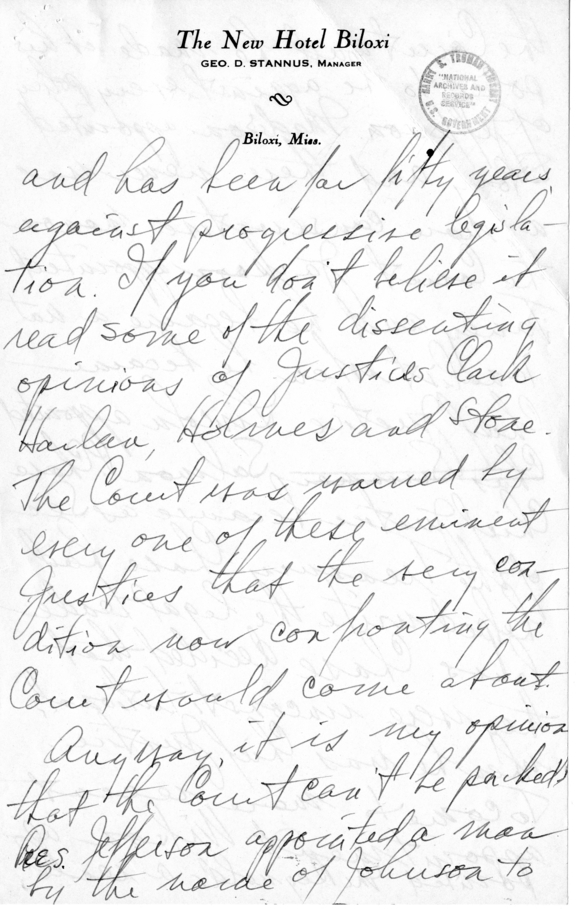 The New Hotel Biloxi
GEO. D. STANNUS, MANAGER
HARRY S. TRUMAN LIBRARY
"NATIONAL
ARCHIVES AND
RECORDS
SERVICE"
U.S. GOVERNMENT
Biloxi, Miss.
and has been for fifty years
against progressive legisla-
tion. If you don't believe it
read some of the dissenting
opinions of Justices Clark
Harlan, Holmes and Stone.
The Court was warned by
every one of these eminent
Justices that the very con-
dition now confronting the
Court would come about.
Anyway, it is my opinion
that the Court can't be packed.
Pres. Jefferson appointed a man
by the name of Johnson to